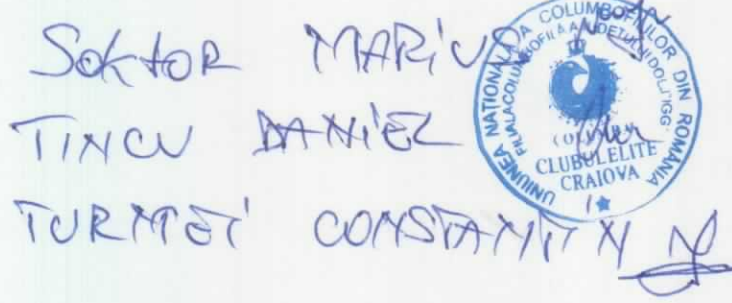 SOKTOR MARIUS
TINCU DANIEL
TURMEI CONSTANTIN
UNIUNEA NATIONALA A COLUMBOFILILOR DIN ROMANIA
FILIALA COLUMBOFILA A JUDETULUI DOLJ
CLUBUL ELITE
CRAIOVA
1